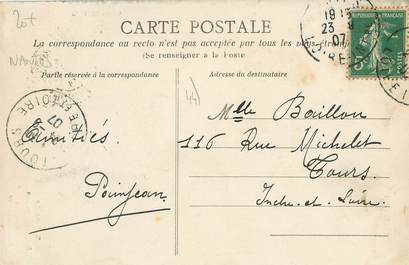 20t
NANTES
CARTE POSTALE
La correspondance au recto n'est pas acceptée par tous les pays
(Se renseigner à la Poste)
Partie réservée à la correspondance
Adresse du destinataire
19
23
07
RÉPUBLIQUE FRANÇAISE
TOURS
ET-LOIRE
07
(44)
Amitiés
Poinjean
Mlle Boillon
116 Rue Michelet
Tours
Indre-et-Loire